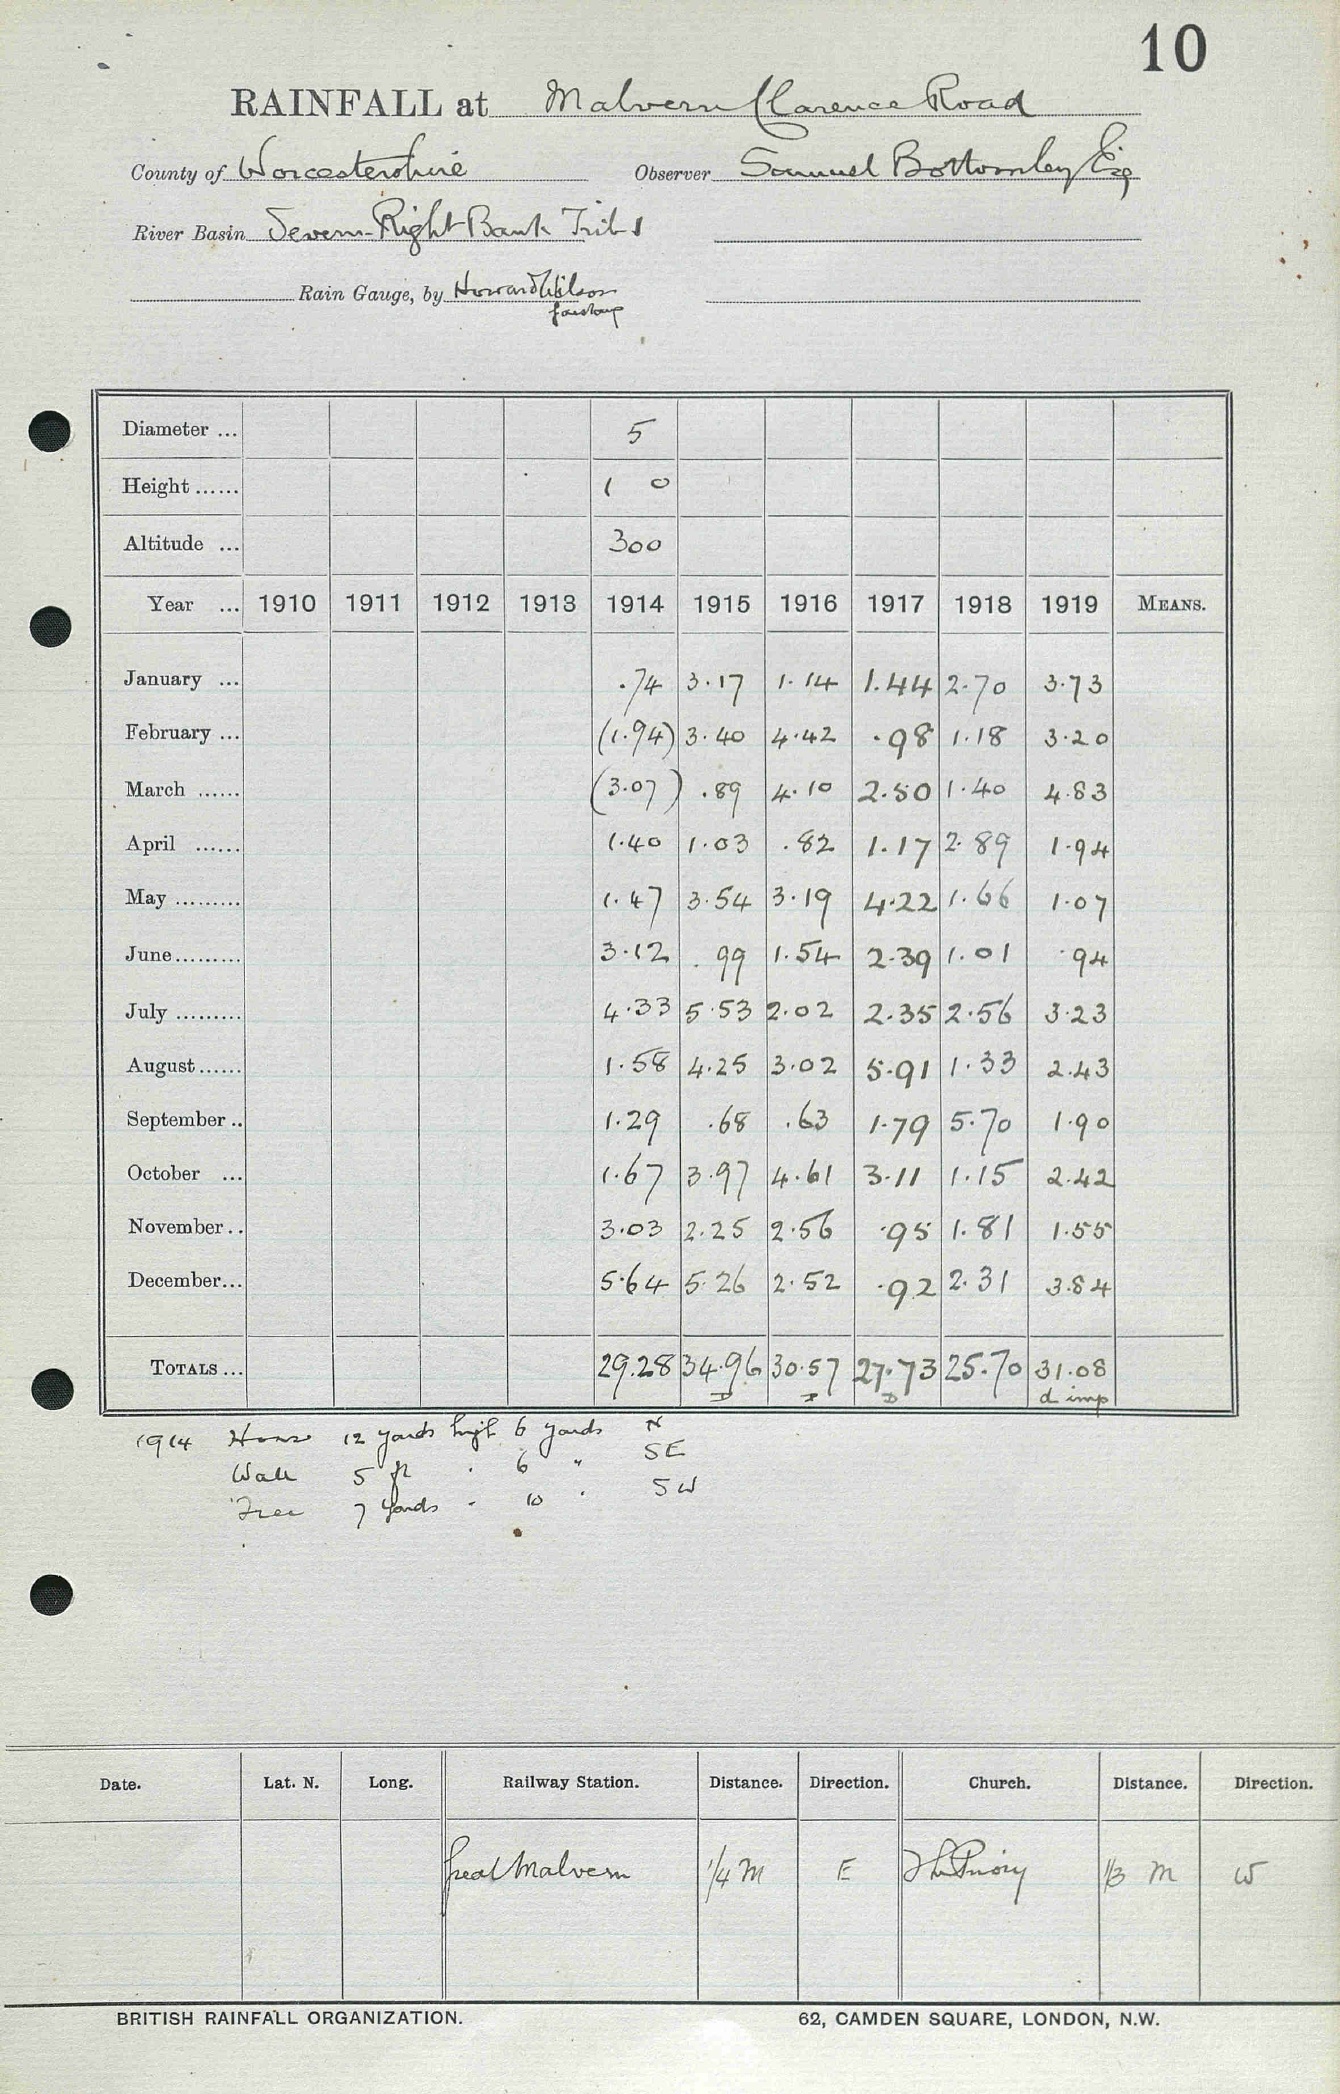 10
RAINFALL at Malvern Clarence Road
County of Worcestershire Observer Samuel Bottomley Esq
River Basin Severn-Right Bank Tribs
Rain Gauge, by Howard Wilson
Diameter ... 5
Height ...... 1 0
Altitude ... 300
Year ... 1910 1911 1912 1913 1914 1915 1916 1917 1918 1919 MEANS.
January ... .74 3.17 1.14 1.44 2.70 3.73
February ... (1.94) 3.40 4.42 .98 1.18 3.20
March ...... (3.07) .89 4.10 2.50 1.40 4.83
April ...... 1.40 1.03 .82 1.17 2.89 1.94
May ......... 1.47 3.54 3.19 4.22 1.66 1.07
June ......... 3.12 .99 1.54 2.39 1.01 .94
July ......... 4.33 5.53 2.02 2.35 2.56 3.23
August ...... 1.58 4.25 3.02 5.91 1.33 2.43
September .. 1.29 .68 .63 1.79 5.70 1.90
October ... 1.67 3.97 4.61 3.11 1.15 2.42
November .. 3.03 2.25 2.56 .95 1.81 1.55
December ... 5.64 5.26 2.52 .92 2.31 3.84
TOTALS ... 29.28 34.96 30.57 27.73 25.70 31.08
D D D d imp
1914 House 12 yards high 6 yards N
Wall 5 ft " 6 " SE
Tree 7 yards " 10 " SW
Date. Lat. N. Long. Railway Station. Distance. Direction. Church. Distance. Direction.
Great Malvern 1/4 M E The Priory 1/3 M W
BRITISH RAINFALL ORGANIZATION. 62, CAMDEN SQUARE, LONDON, N.W.